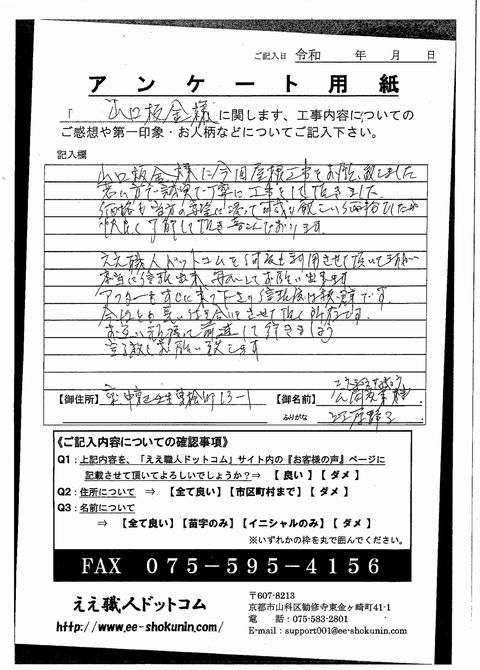 ご記入日 令和 年 月 日
アンケート用紙
「 山口板金様 に関します、工事内容についての
ご感想や第一印象・お人柄などについてご記入下さい。
記入欄
山口板金様に今回屋根工事をお願い致しました
若い方だ誠実で丁寧に工事をして頂きました
快よく了解して頂き喜んでおります。
ええ職人ドットコムを何度も利用させて頂いてますが
本当に信頼出来、安心してお願い出来ます
アフターもすぐに来て下さり信頼度は抜群です
今後とも長い付き合いをさせて頂く所存です。
お互い頑張って前進して行きましょう
宜敷くお願い致します
【御住所】
13-1
【御名前】
ふりがな
《ご記入内容についての確認事項》
Q1：上記内容を、「ええ職人ドットコム」サイト内の『お客様の声』ページに
記載させて頂いてよろしいでしょうか？⇒ 【 良い 】【 ダメ 】
Q2：住所について ⇒ 【全て良い】【市区町村まで】【 ダメ 】
Q3：名前について
⇒ 【全て良い】【苗字のみ】【イニシャルのみ】【 ダメ 】
※いずれかの枠を丸で囲んでください。
FAX 075-595-4156
ええ職人ドットコム
http://www.ee-shokunin.com/
〒607-8213
京都市山科区勧修寺東金ヶ崎町41-1
電 話：075-583-2801
E-mail：support001@ee-shokunin.com